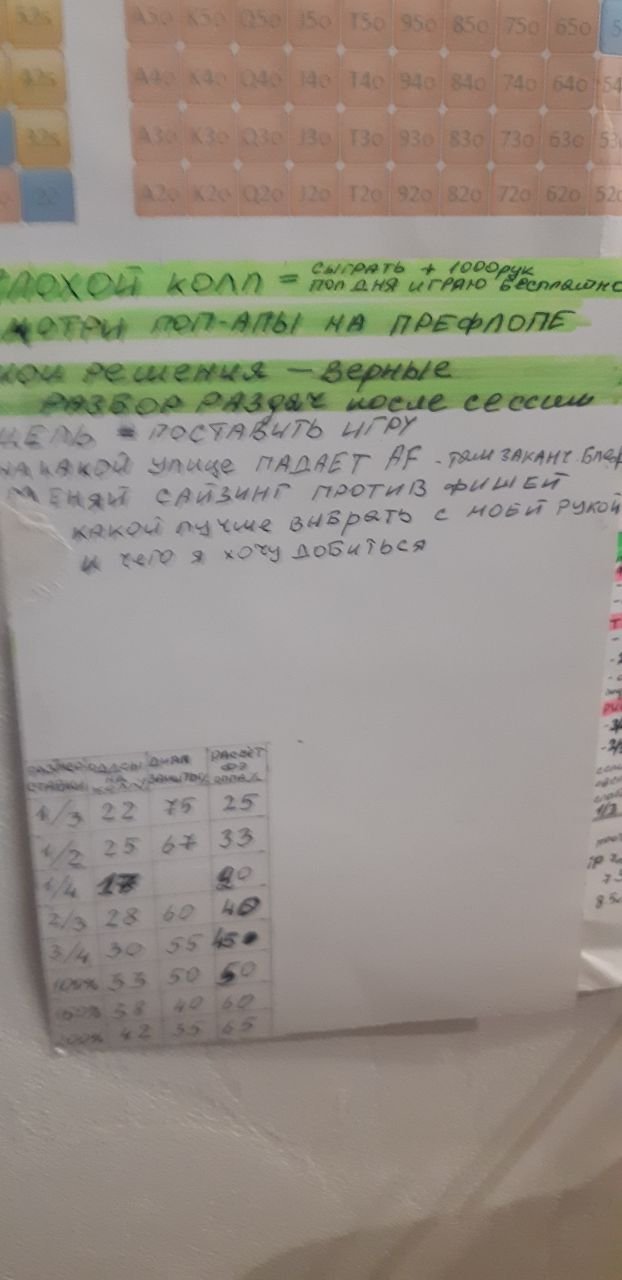 52s A5o K5o Q5o J5o T5o 95o 85o 75o 65o 5
42s A4o K4o Q4o J4o T4o 94o 84o 74o 64o 54
32s A3o K3o Q3o J3o T3o 93o 83o 73o 63o 53
22 A2o K2o Q2o J2o T2o 92o 82o 72o 62o 52o
ПЛОХОЙ КОЛЛ = СЫГРАТЬ + 1000 РУК
ПОЛ ДНЯ ИГРАЮ БЕСПЛАТНО
МОТРИ ПОП-АПЫ НА ПРЕФЛОПЕ
МОИ РЕШЕНИЯ – ВЕРНЫЕ
РАЗБОР РАЗДАЧ ПОСЛЕ СЕССИИ
ЦЕЛЬ = ПОСТАВИТЬ ИГРУ
НА КАКОЙ УЛИЦЕ ПАДАЕТ AF - ТАМ ЗАКАНЧ БЛЕФ
МЕНЯЙ САЙЗИНГ ПРОТИВ ФИШЕЙ
КАКОЙ ЛУЧШЕ ВЫБРАТЬ С МОЕЙ РУКОЙ
И ЧЕГО Я ХОЧУ ДОБИТЬСЯ
РАЗМЕР СТАВКИ ОДДСЫ НА КОЛЛ ДИАП ЗАЩИТЫ РАСЧЕТ ФЭ
1/3 22 75 25
1/2 25 67 33
1/4 17 20
2/3 28 60 40
3/4 30 55 45
100% 33 50 50
150% 38 40 60
200% 42 35 65